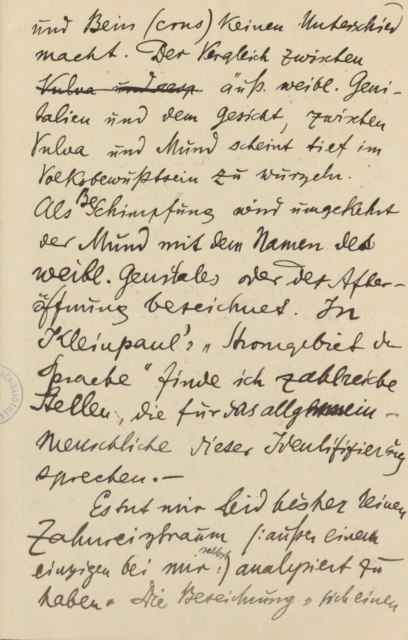 und Bein (crus) keinen Unterschied
macht. Der Vergleich zwischen
Vulva und resp. äuß. weibl. Geni-
talien und dem Gesicht, zwischen
Vulva und Mund scheint tief im
Volksbewußtsein zu wurzeln.
Als Beschimpfung wird umgekehrt
der Mund mit dem Namen des
weibl. Genitales oder der After-
öffnung bezeichnet. In
Kleinpaul's „Stromgebiet der
Sprache“ finde ich zahlreiche
Stellen, die für das allgemein-
menschliche dieser Identifizierung
sprechen.—
Es tut mir Leid bisher keinen
Zahnreiztraum (: außer einem
einzigen bei mir selbst :) analysiert zu
haben. Die Bezeichnung „sich einen